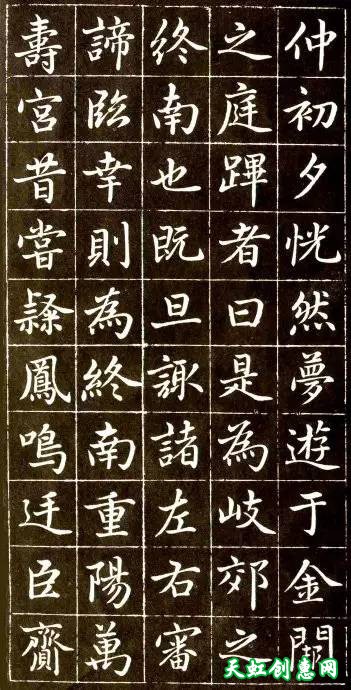 仲初夕恍然夢遊于金闕
之庭蹕者曰是為岐郊之
終南也既旦諏諸左右審
諦臨幸則為終南重陽萬
壽宮昔嘗隸鳳鳴廷臣齎
天虹创意网